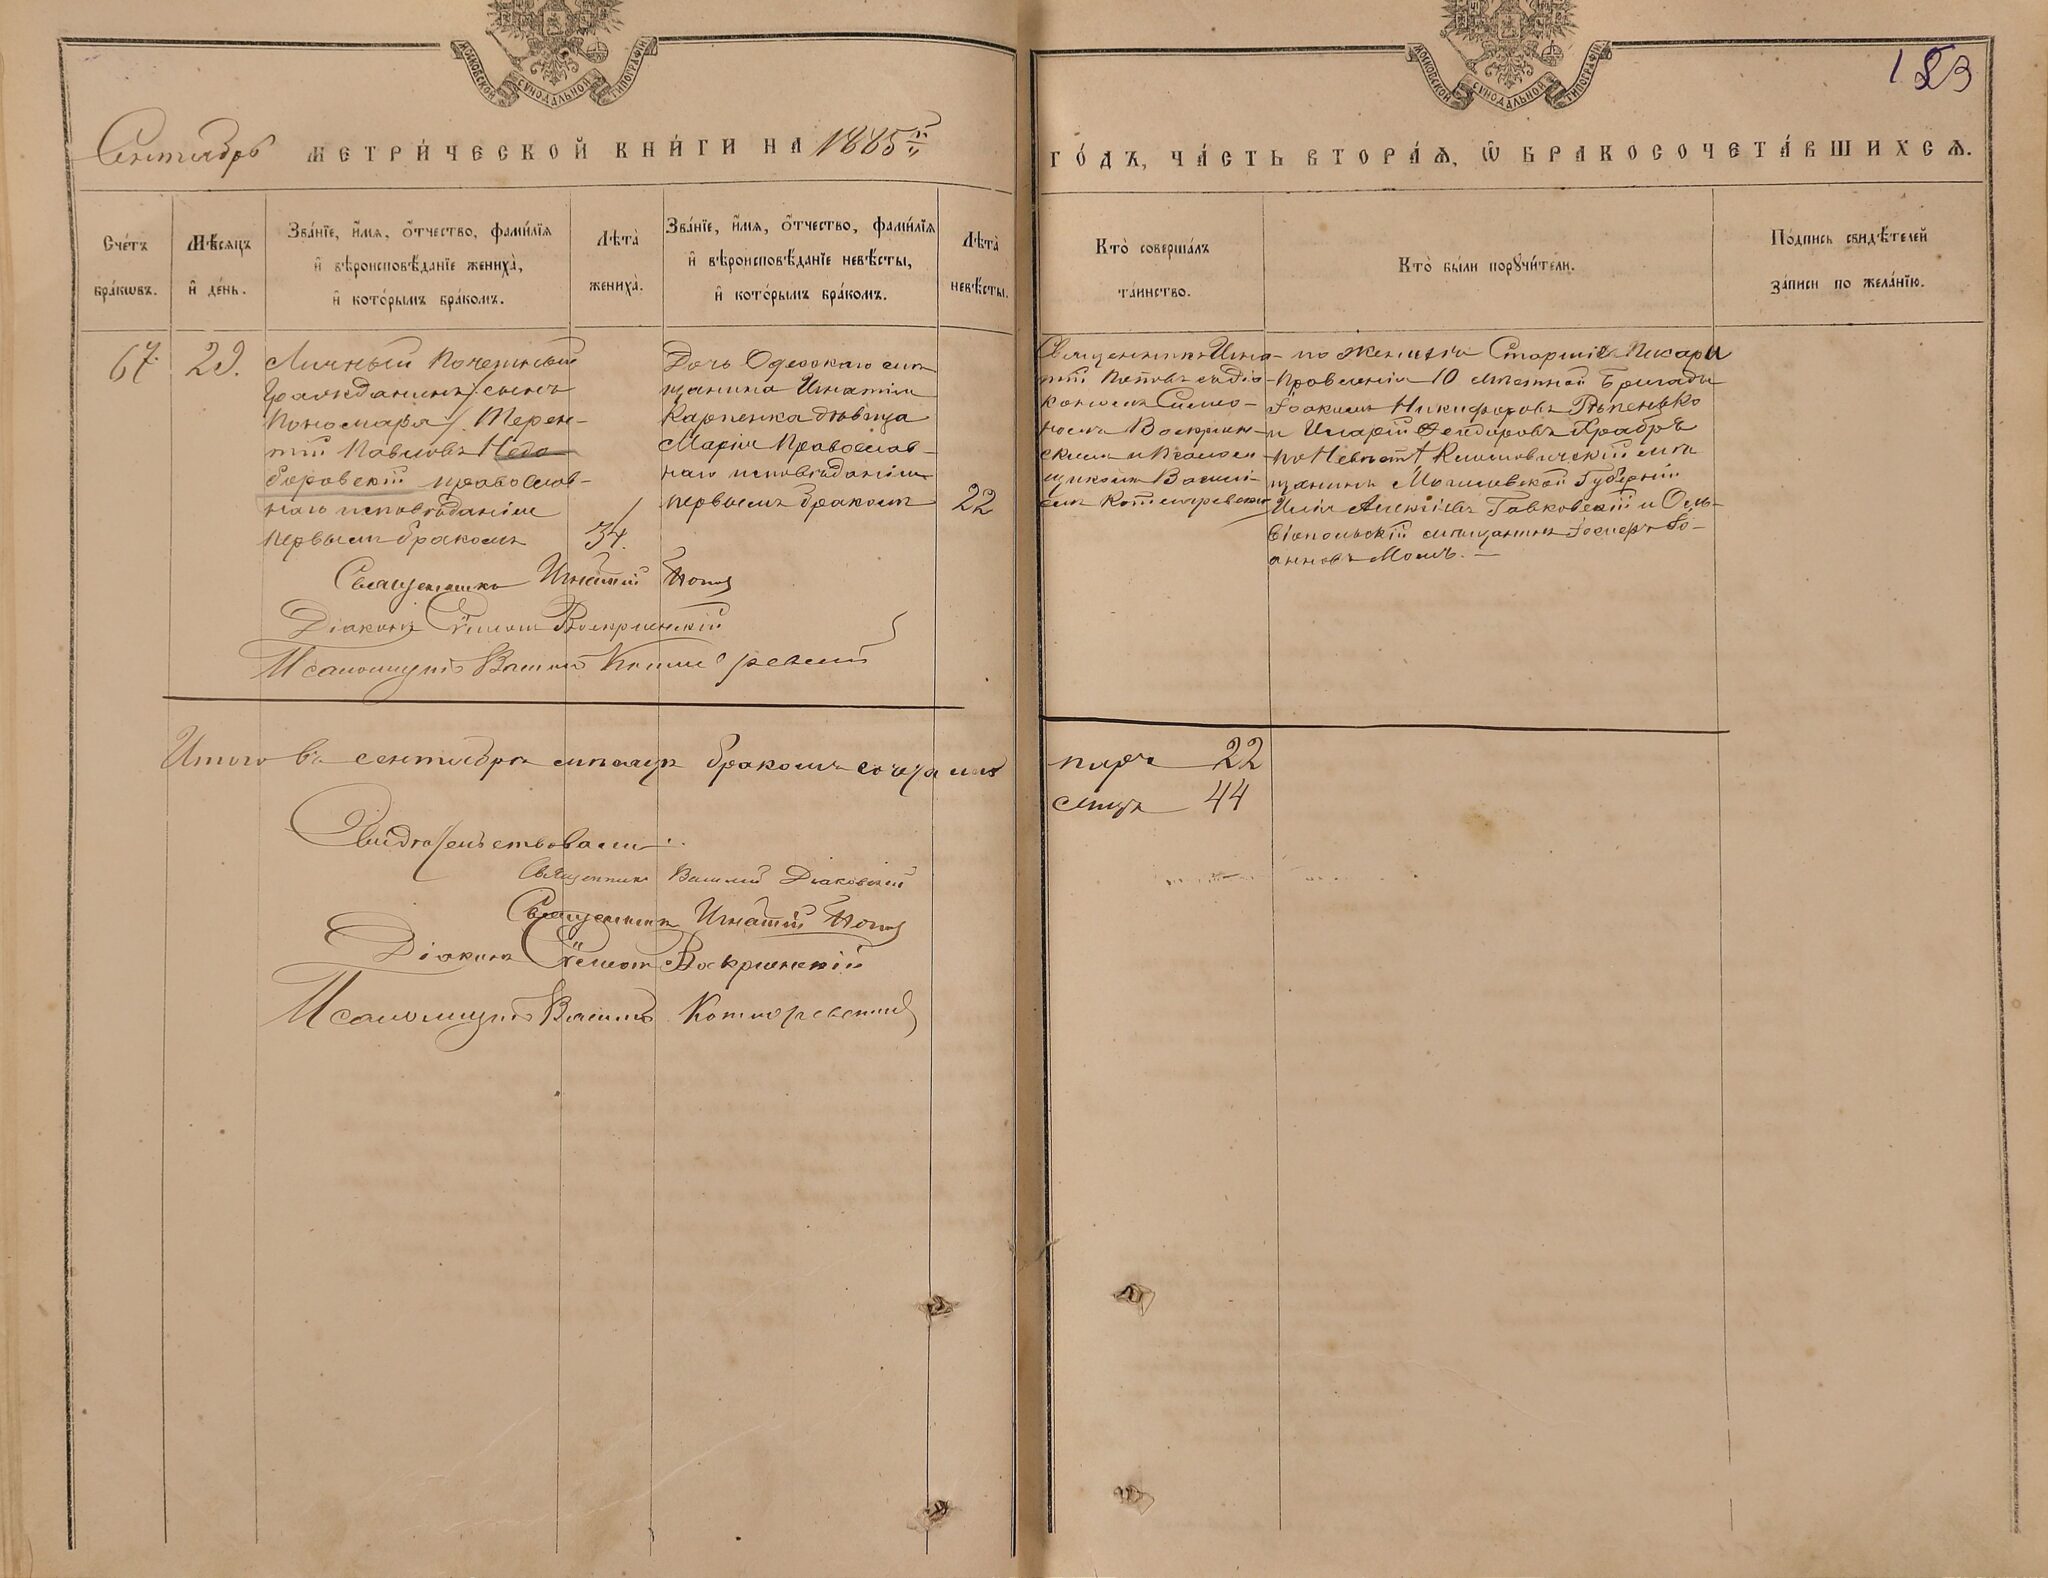 МОСКОВСКОЙ СѴНОДАЛЬНОЙ ТИПОГРАФІИ
МОСКОВСКОЙ СѴНОДАЛЬНОЙ ТИПОГРАФІИ
183
Сентябрь МЕТРИ́ЧЕСКОЙ КНИ́ГИ НА 1885й
ГО́ДЪ, ЧА́СТЬ ВТОРА́Ѧ, Ѽ БРАКОСОЧЕТА́ВШИХСѦ.
Сче́тъ
бра́кѡвъ.
Мѣ́сѧцъ
и҆ де́нь.
Зва́нїе, и҆́мѧ, ѻ҆́тчество, фами́лїѧ
и҆ вѣроисповѣ́данїе жениха̀,
и҆ кото́рымъ бра́комъ.
Лѣта̀
жениха̀.
Зва́нїе, и҆́мѧ, ѻ҆́тчество, фами́лїѧ
и҆ вѣроисповѣ́данїе невѣ́сты,
и҆ кото́рымъ бра́комъ.
Лѣта̀
невѣ́сты.
Кто̀ соверша́лъ
та́инство.
Кто̀ бы́ли порꙋчи́тели.
По́дпись свидѣ́телей
за́писи по жела́нїю.
67.
29.
Личный Почетный
Гражданинъ /: сынъ
Пономаря /. Терен-
тій Павловъ Недо
боровскій православ-
наго исповѣданія
первымъ бракомъ
34.
Дочь Одесскаго мѣ
щанина Игнатія
Карпенка дѣвица
Марія Православ-
наго исповѣданія
первымъ бракомъ
22
Священникъ Игна-
тій Поповъ съ діа
кономъ Симео-
номъ Воскресен-
скимъ и Псалом
щикомъ Васи-
емъ Котляревскимъ
по женихѣ Старшіе Писари
Правленія 10 мѣстной Бригады
Іоакимъ Никифоровъ Рѣпенько
и Иларій Феодоровъ Храбръ
по Невѣстѣ Климовическій мѣ
щанинъ Могилевской Губерніи
Илія Алексіевъ Гавковскій и Оль-
віопольскій мѣщанинъ Іосифъ Іо-
анновъ Моль. —
Священникъ Игнатій Поповъ
Діаконъ Сѵмеонъ Воскресенскій
Псаломщикъ Василій Котляревскій
Итого въ сентябрѣ мѣсяцѣ бракомъ сочеталось
паръ 22
лицъ 44
Свидѣтельствовали:
Священникъ Василій Діаковскій
Священникъ Игнатій Поповъ
Діаконъ Сѵмеонъ Воскресенскій
Псаломщикъ Василій Котляревскій